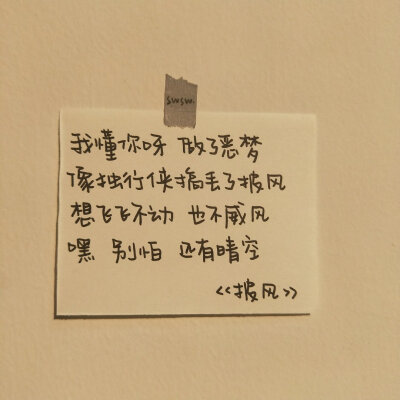 swsw.
我懂你呀 做了恶梦
像独行侠搞丢了披风
想飞飞不动 也不威风
嘿 别怕 还有晴空
《披风》